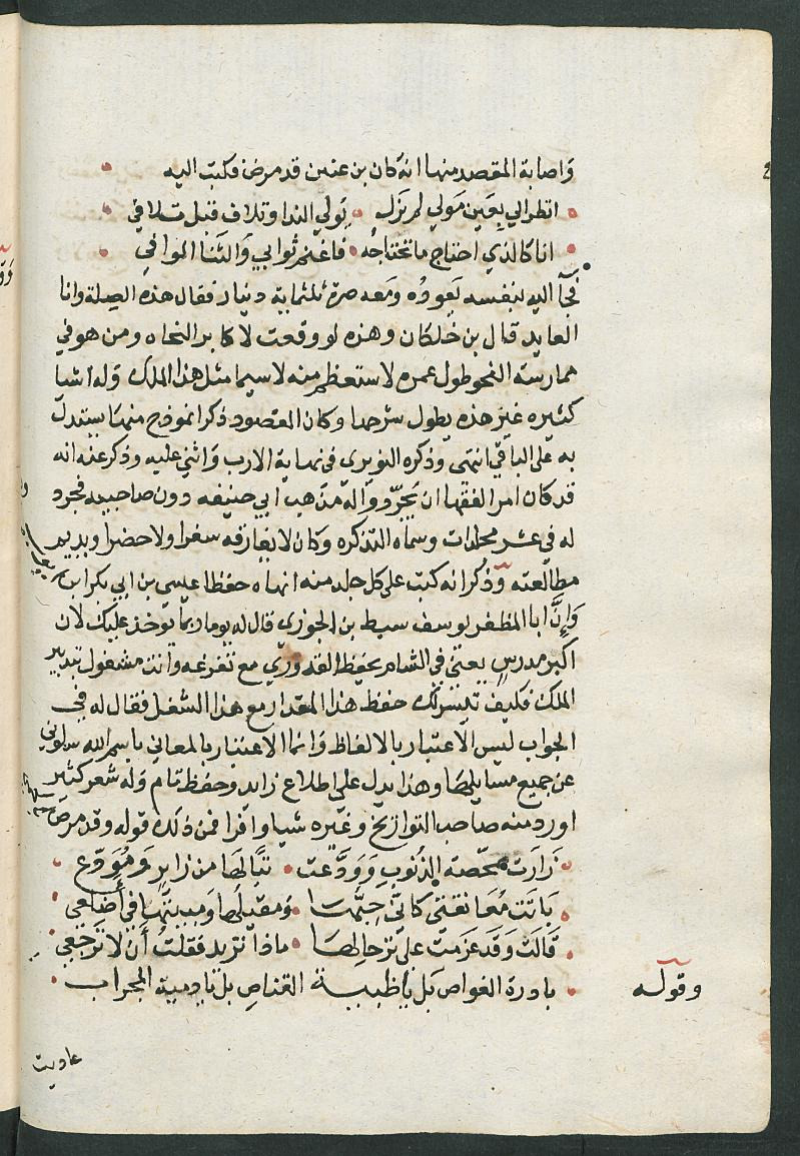 واصابة المقصد منها انه كان بن عنين قد مرض فكتب اليه
انظر الي بعين مولي لم يزل • يولي الندا وتلاف قبل تلافي
انا كالذي احتاج ما تحتاجه • فاغنم ثوابي والثنا الوافي
فجآ اليه بنفسه يعوده ومعه صرة ثلثماية دينار فقال هذه الصلة وانا
العايد قال بن خلكان وهذه لو وقعت لاكابر النحاه ومن هو في
ممارسته النحو طول عمره لاستعظم منه لا سيما مثل هذا الملك وله اشيا
كثيره غير هذه يطول شرحها وكان المقصود ذكر انموذج منها يستدل
به علي الباقي انتهى وذكره النويري في نهاية الارب واثني عليه وذكر عنه انه
قد كان امر الفقها ان يجردوا له مذهب ابي حنيفه دون صاحبيه فجرد
له في عشر مجلدات وسماه التذكره وكان لا يفارقه سفرا ولا حضرا ويديم
مطالعته وذكر انه كتب علي كل جلد منه انهاه حفظا عيسي بن ابي بكر ابن
وان ابا المظفر يوسف سبط بن الجوزي قال له يوما ربما توخذ عليك لان
اكبر مدرس يعتني في الشام بحفظ القدوري مع تفرغه وانت مشغول بتدبير
الملك فكيف تيسر لك حفظ هذا المقدار مع هذا الشغل فقال له في
الجواب ليس الاعتبار بالالفاظ وانما الاعتبار بالمعاني باسم الله سلوني
عن جميع مسايلها وهذا يدل علي اطلاع زايد وحفظ تام وله شعر كثير
اورد منه صاحب التواريخ وغيره شيا وافرا فمن ذلك قوله وقد مرض
زارت محصته الذنوب وودعت • تبا لها من زاير ومودع
باتت معانقتي كاني حبها • ومقيلها ومبيتها في أضلعي
قالت وقد عزمت علي ترحالها • ماذا تريد فقلت أن لا ترجعي
وقوله
يا درة الغواص بل يا ظبية القناص بل يا دمية المحراب
عاديت